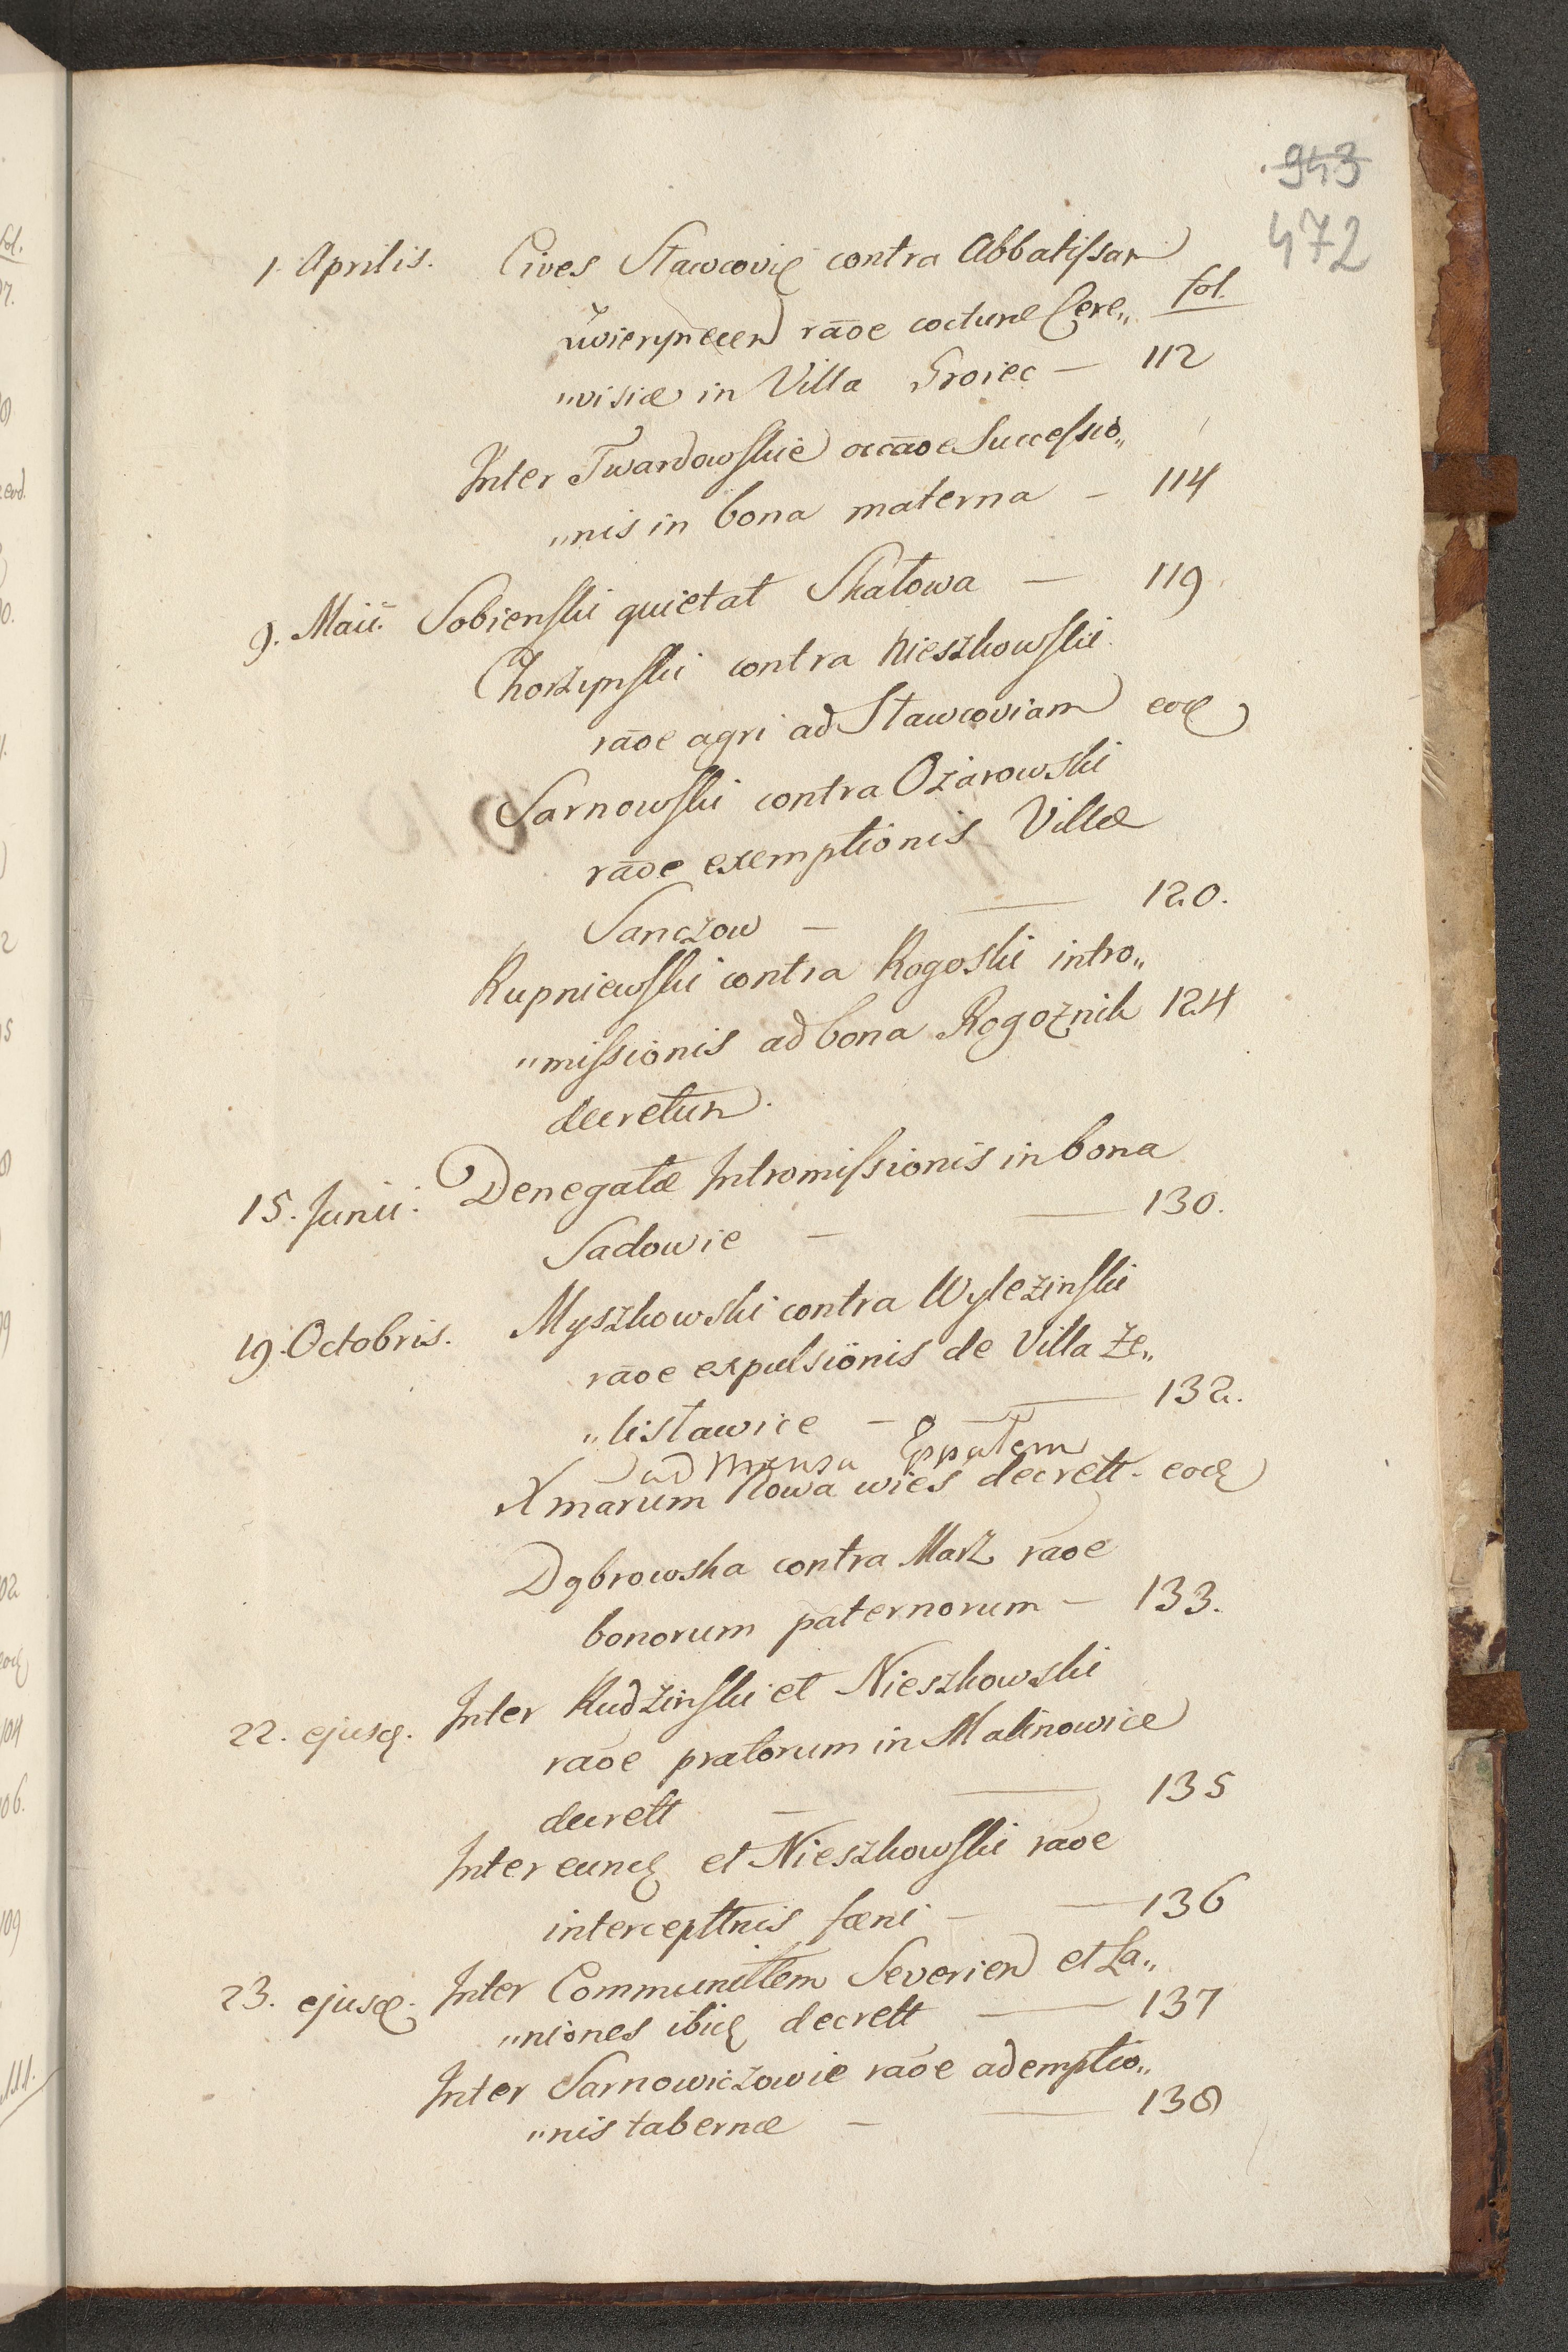 943
472
fol.
1. Aprilis. Cives Stawcovię contra Abbatissam
Zwierÿnecen rāoe cocturæ Cere„
„visiæ in Villa Groiec — 112
Inter Twardowskie occāoe Successio„
„nis in bona materna — 114
9. Maii. Sobienski quietat Skatowa — 119
Chorzynski contra Nieszkowski
rāoe agri ad Stawcoviam eod
Sarnowski contra Ozarowski
rāoe exemptionis Villæ
Sanczow — 120.
Rupniewski contra Rogoski intro„
„missionis ad bona Rogoznik 124
decretum.
15. Junii. Denegatæ Intromissionis in bona
Sadowie — 130.
19. Octobris. Myszkowski contra Wylezinski
rāoe expulsionis de Villa Ze„
„listawice — 132.
ad mensa Eppalem
Xmarum Nowa wies decrett. eod
Dąbrowska contra Marz rāoe
bonorum paternorum — 133.
22. ejusd. Inter Rudzinski et Nieszkowski
rāoe pratorum in Malinowice
decrett — 135
Inter eund et Nieszkowski rāoe
interceptnis fæni — 136
23. ejusd. Inter Communittem Severien et La„
„niones ibid decrett — 137
Inter Sarnowiczowie rāoe ademptio„
„nis tabernæ — 138